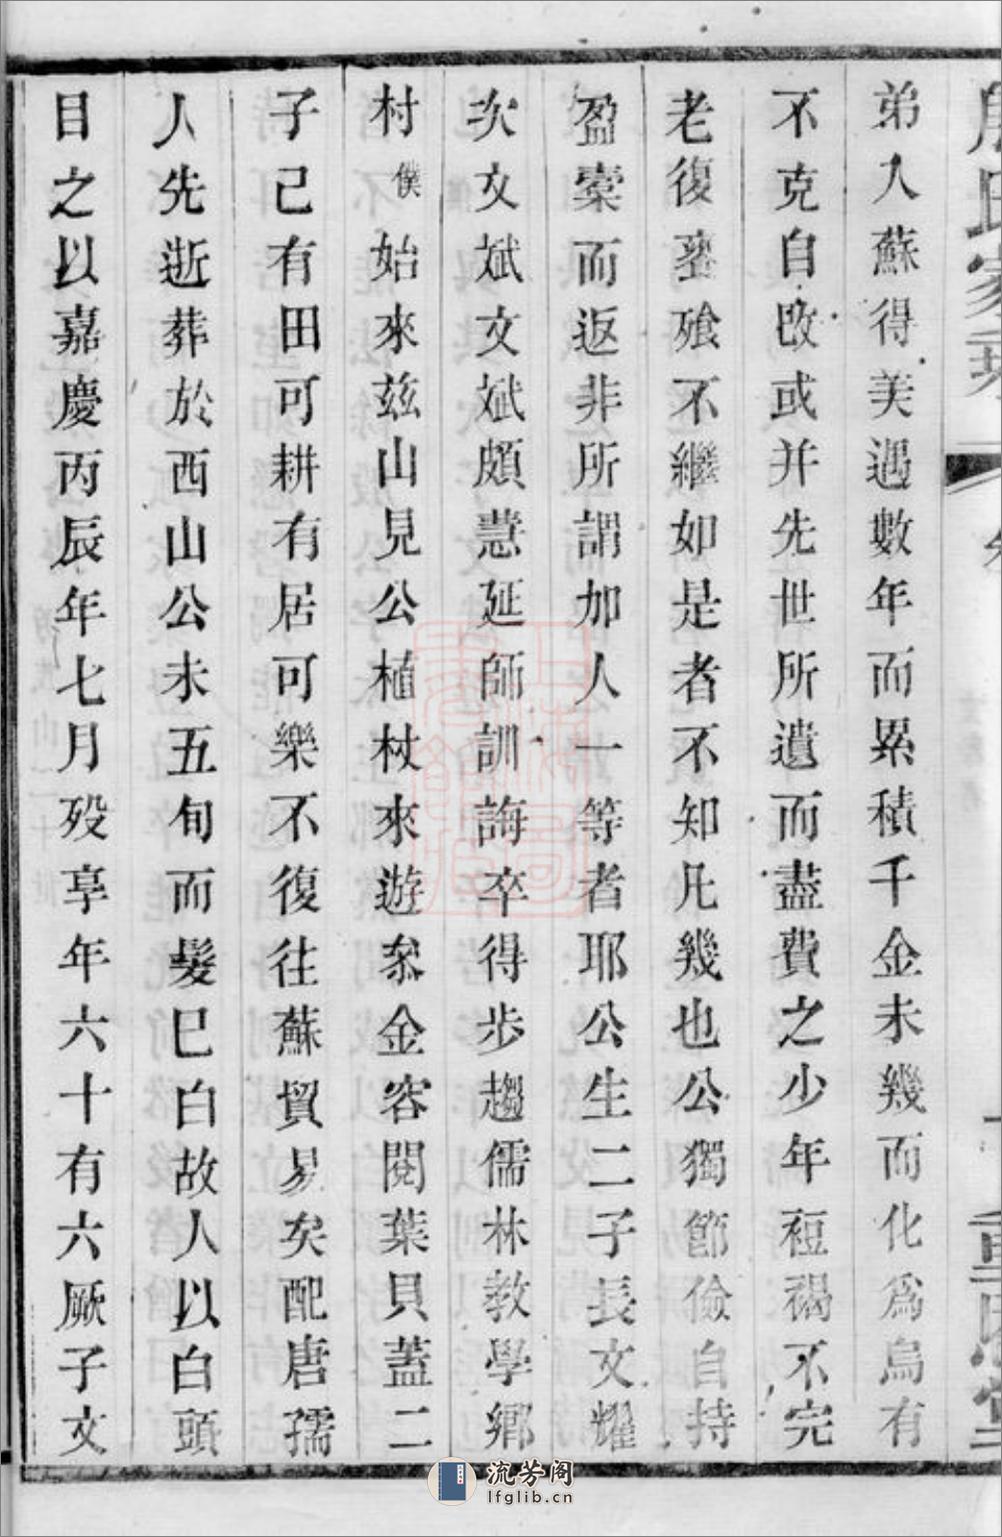 弟人蘇得美遇數年而累積千金未幾而化爲烏有
不克自改或并先世所遺而盡費之少年裋褐不完
老復饔飧不繼如是者不知凡幾也公獨節儉自持
盈橐而返非所謂加人一等者耶公生二子長文耀
次文斌文斌頗慧延師訓誨卒得步趨儒林教學鄉
村僕始來茲山見公植杖來遊叅金容閱葉貝蓋二
子己有田可耕有居可樂不復往蘇貿易矣配唐孺
人先逝葬於西山公未五旬而髮巳白故人以白頭
目之以嘉慶丙辰年七月歿享年六十有六厥子文
流芳阁
lfglib.cn